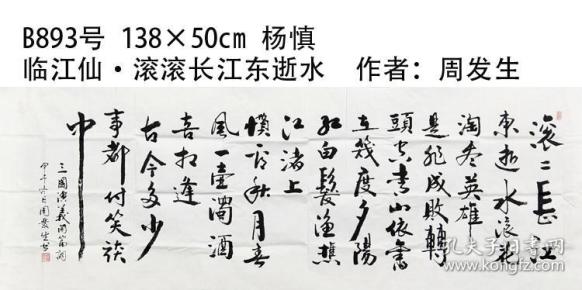 B893号 138×50cm 杨慎
临江仙·滚滚长江东逝水 作者：周发生
滚二長江
東逝水浪花
淘尽英雄
是非成敗轉
頭空青山依舊
在幾度夕陽
红白髮渔樵
江渚上
慣看秋月春
風一壶濁酒
喜相逢
古今多少
事都付笑谈
中
三國演義開篇詞
甲午六月周發生书
孔夫子旧书网